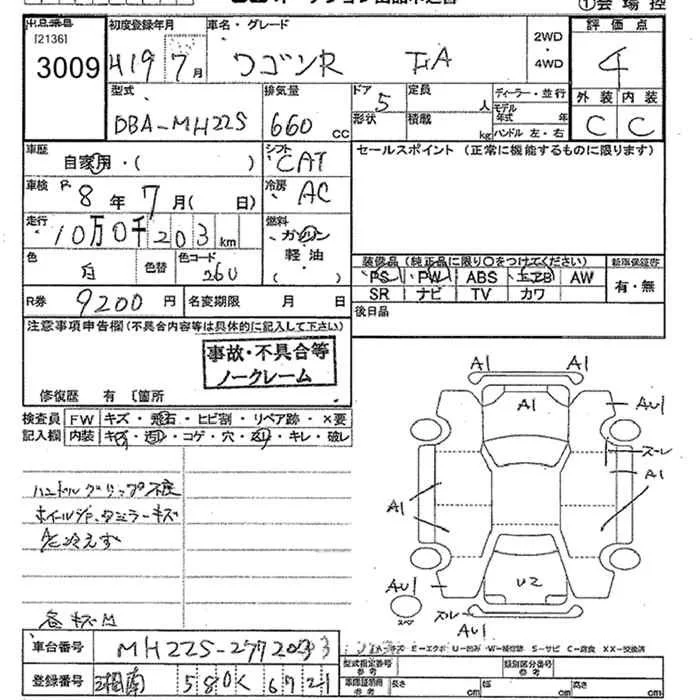 ①会場控
出品番号
[2136]
3009
初度登録年月
H19 7月
車名・グレード
ワゴンR FA
2WD
・
4WD
評価点
4
外装 内装
C C
型式
DBA-MH22S
排気量
660 cc
ドア 5
形状
定員 人
積載 kg
ディーラー・並行
モデル年式 年
ハンドル 左・右
車歴
自家用・( )
シフト
CAT
セールスポイント (正常に機能するものに限ります)
車検 R 8年 7月( 日)
冷房
AC
走行
10万0千203km
燃料
ガソリン
軽油
( )
色
白
色替
色コード
26U
装備品 (純正品に限り〇をつけてください)
PS PW ABS エアB AW
SR ナビ TV カワ
新車保証書
有・無
R券 9200円
名変期限 月 日
後日品
注意事項申告欄(不具合内容等は具体的に記入して下さい)
事故・不具合等
ノークレーム
修復歴 有 〔箇所
検査員 FW キズ・飛石・ヒビ割・リペア跡・×要
記入欄 内装 キズ・汚レ・コゲ・穴・ヌレ・キレ・破レ
A1 A1
A1
AU1
ズレ
A1
A1
AU1
U2
スペア
ズレ
AU1
車台番号
登録番号
湘南 580 く 6721
E=エクボ U=凹み W=補修跡 S=サビ C=腐食 XX=交換済
型式指定番号
参考
類別区分番号
参考
車庫証明用
参考
長さ cm
幅 cm
高さ cm